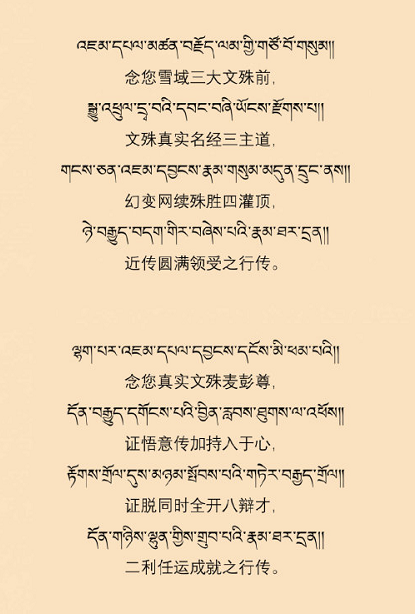 འཇམ་དཔལ་མཚན་བརྗོད་ལམ་གྱི་གཙོ་བོ་གསུམ།།
念您雪域三大文殊前，
སྒྱུ་འཕྲུལ་དྲྭ་བའི་དབང་བཞི་ཡོངས་རྫོགས་པ།།
文殊真实名经三主道，
གངས་ཅན་འཇམ་དབྱངས་རྣམ་གསུམ་མདུན་དྲུང་ནས།།
幻变网续殊胜四灌顶，
ཉེ་བརྒྱུད་བདག་གིར་བཞེས་པའི་རྣམ་ཐར་དྲན།།
近传圆满领受之行传。
ལྷག་པར་འཇམ་དཔལ་དབྱངས་དངོས་མི་ཕམ་པའི།།
念您真实文殊麦彭尊，
དོན་བརྒྱུད་དགོངས་པའི་བྱིན་རླབས་ཐུགས་ལ་འཕོས།།
证悟意传加持入于心，
རྟོགས་གྲོལ་དུས་མཉམ་སྤོབས་པའི་གཏེར་བརྒྱད་གྲོལ།།
证脱同时全开八辩才，
དོན་གཉིས་ལྷུན་གྱིས་གྲུབ་པའི་རྣམ་ཐར་དྲན།།
二利任运成就之行传。